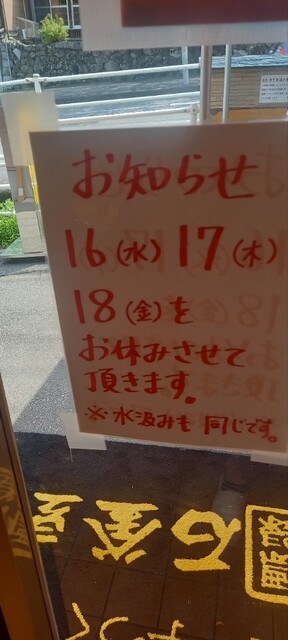 お知らせ
16(水) 17(木)
18(金)を
お休みさせて
頂きます。
※水汲みも 同じです。
石釜